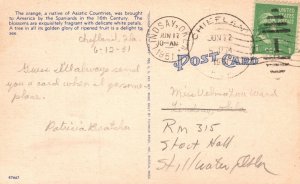 The orange, a native of Asiatic Countries, was brought
to America by the Spaniards in the 16th Century. The
blossoms are exquisitely fragrant with delicate white petals.
A tree in all its golden glory of ripened fruit is a delight to
see.
Chiefland, Fla.
6-12-51
Guess I'll always send
you a card when it someone
place.
Patricia
JUN 12
10 AM
CHIEFLAND
JUN 12
POST CARD
Miss Ward
RM 315
Stout Hall
Stillwater, Okla